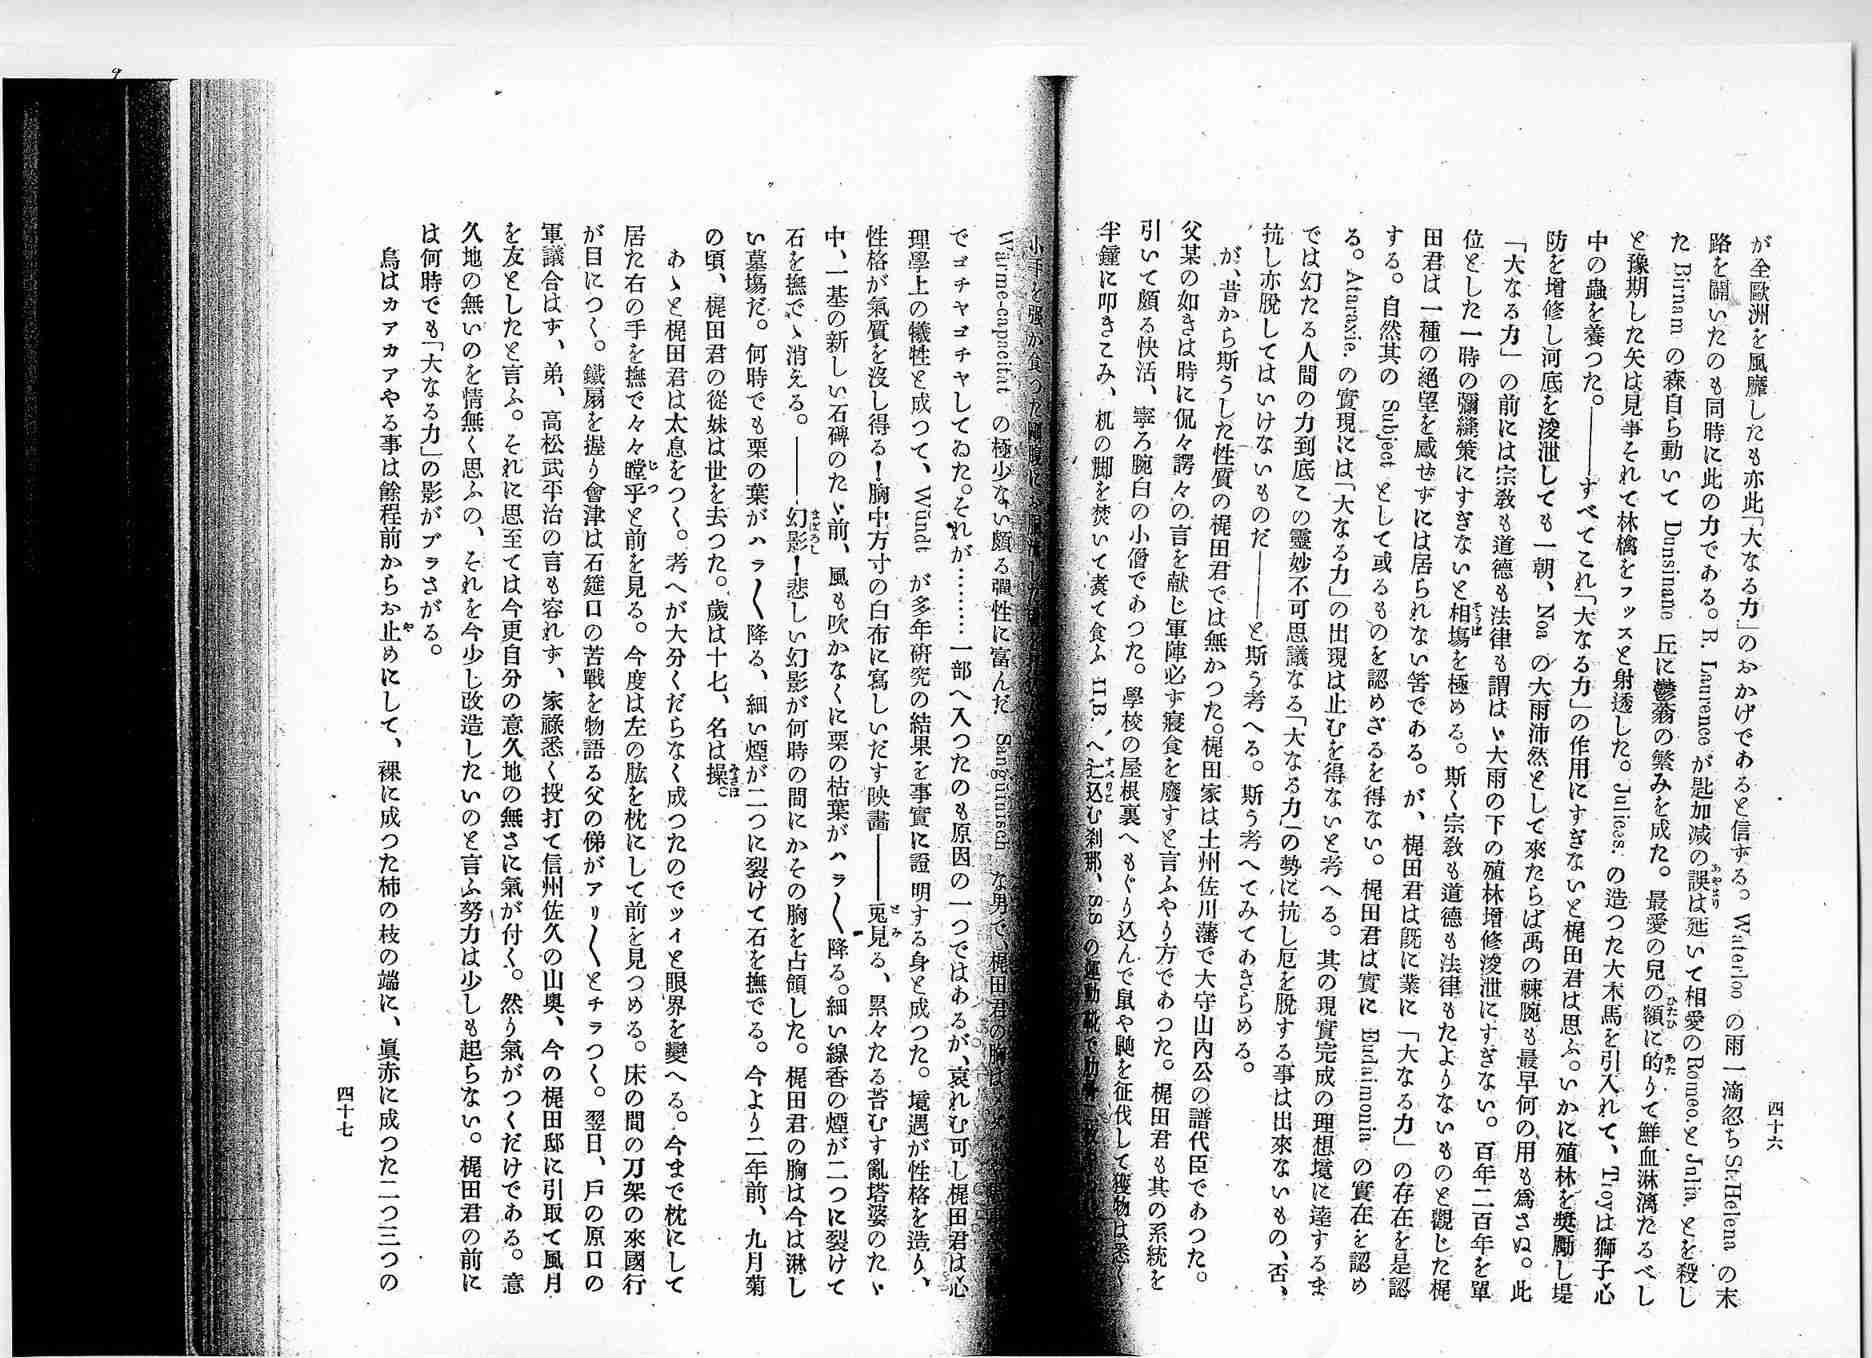 四十六
が全歐洲を風靡したも亦此「大なる力」のおかげであると信ずる。Waterloo の雨一滴忽ち St. Helena の末
路を開いたのも同時に此の力である。R. Laurence が匙加減の誤は延いて相愛の Romeo. と Julia. とを殺し
た Birnam の森自ら動いて Dunsinane 丘に鬱蓊の繁みを成た。最愛の兒の額に的りて鮮血淋漓たるべし
と豫期した矢は見事それて林檎をフッスと射透した。Julies. の造つた大木馬を引入れて、Troy は獅子心
中の蟲を養つた。――すべてこれ「大なる力」の作用にすぎないと梶田君は思ふ。いかに殖林を奬勵し堤
防を增修し河底を浚泄しても一朝、Noa の大雨沛然として來たらば禹の棘腕も最早何の用も爲さぬ。此
「大なる力」の前には宗敎も道德も法律も謂はゞ大雨の下の殖林增修浚泄にすぎない。百年二百年を單
位とした一時の彌縫策にすぎないと相塲を極める。斯く宗敎も道德も法律もたよりないものと觀じた梶
田君は一種の絕望を感せずには居られない筈である。が、梶田君は旣に業に「大なる力」の存在を是認
する。自然其の Subject として或るものを認めざるを得ない。梶田君は實に Endaimonia の實在を認め
る。Ataraxie. の實現には「大なる力」の出現は止むを得ないと考へる。其の現實完成の理想境に達するま
では幻たる人間の力到底この靈妙不可思議なる「大なる力」の勢に抗し厄を脫する事は出來ないもの、否、
抗し亦脫してはいけないものだ――と斯う考へる。斯う考へてみてあきらめる。
が、昔から斯うした性質の梶田君では無かつた。梶田家は土州佐川藩で大守山內公の譜代臣であつた。
父某の如きは時に侃々諤々の言を献じ軍陣必ず寢食を廢すと言ふやり方であつた。梶田君も其の系統を
引いて頗る快活、寧ろ腕白の小僧であつた。學校の屋根裏へもぐり込んで鼠や鼬を征伐して獲物は悉く
半鐘に叩きこみ、机の脚を焚いて煮て食ふ H.B. へ辷込む刹那、S.S の運動靴で肋骨一
小手を强か食つた
Wärme-capacität の極少ない頗る彈性に富んだ Sanguinisch な男で、梶田君の胸は
でゴチヤゴチヤしてゐた。それが………一部へ入つたのも原因の一つではあるが、哀れむ可し梶田君は心
理學上の犧牲と成つて、Wundt が多年硏究の結果を事實に證明する身と成つた。境遇が性格を造り、
性格が氣質を沒し得る！胸中方寸の白布に寫しいだす映畵――兎見る、累々たる苔むす亂塔婆のたゞ
中、一基の新しい石碑のたゞ前、風も吹かなくに栗の枯葉がハラ〱降る。細い線香の煙が二つに裂けて
石を撫でゝ消える。――幻影！悲しい幻影が何時の間にかその胸を占領した。梶田君の胸は今は淋し
い墓塲だ。何時でも栗の葉がハラ〱降る、細い煙が二つに裂けて石を撫でる。今より二年前、九月菊
の頃、梶田君の從妹は世を去つた。歲は十七、名は操。
あゝと梶田君は太息をつく。考へが大分くだらなく成つたのでツイと眼界を變へる。今まで枕にして
居た右の手を撫で々々瞠乎と前を見る。今度は左の肱を枕にして前を見つめる。床の間の刀架の來國行
が目につく。鐵扇を握り會津は石筵口の苦戰を物語る父の俤がアリ〱とチラつく。翌日、戶の原口の
軍議合はず、弟、高松武平治の言も容れず、家祿悉く投打て信州佐久の山奧、今の梶田邸に引取て風月
を友としたと言ふ。それに思至ては今更自分の意久地の無さに氣が付く。然り氣がつくだけである。意
久地の無いのを情無く思ふの、それを今少し改造したいのと言ふ努力は少しも起らない。梶田君の前に
は何時でも「大なる力」の影がブラさがる。
烏はカアカアやる事は餘程前からお止めにして、裸に成つた柿の枝の端に、眞赤に成つた二つ三つの
四十七